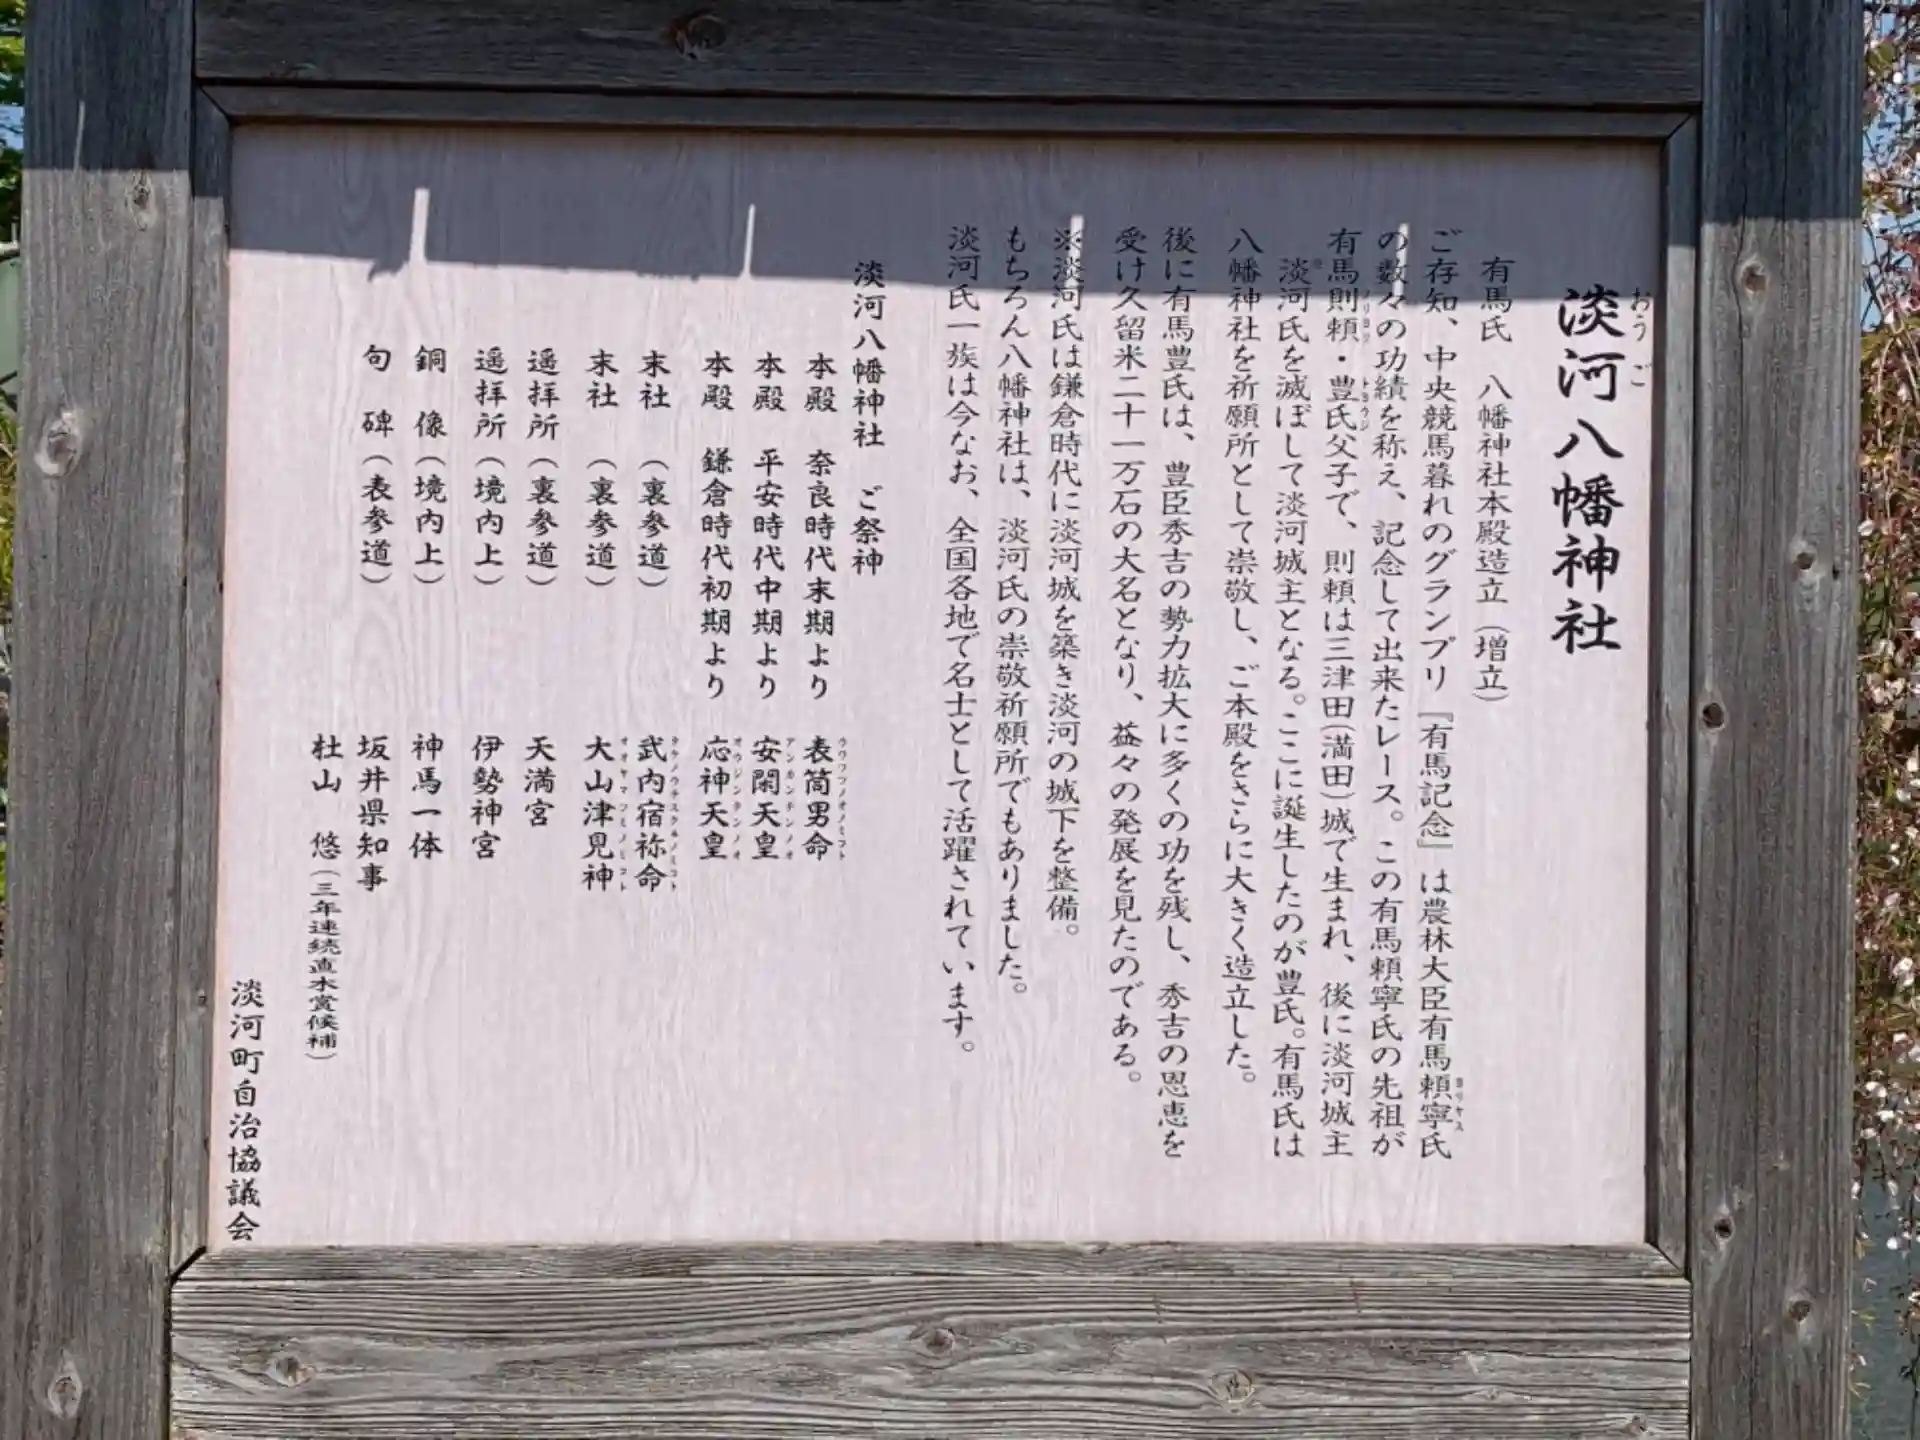 淡河八幡神社
おうご
有馬氏 八幡神社本殿造立(増立)
ご存知、中央競馬暮れのグランプリ『有馬記念』は農林大臣有馬頼寧氏
ヨリヤス
の数々の功績を称え、記念して出来たレース。この有馬頼寧氏の先祖が
有馬則頼・豊氏父子で、則頼は三津田(満田)城で生まれ、後に淡河城主
ノリヨリ トヨウジ
※淡河氏を滅ぼして淡河城主となる。ここに誕生したのが豊氏。有馬氏は
八幡神社を祈願所として崇敬し、ご本殿をさらに大きく造立した。
後に有馬豊氏は、豊臣秀吉の勢力拡大に多くの功を残し、秀吉の恩恵を
受け久留米二十一万石の大名となり、益々の発展を見たのである。
※淡河氏は鎌倉時代に淡河城を築き淡河の城下を整備。
もちろん八幡神社は、淡河氏の崇敬祈願所でもありました。
淡河氏一族は今なお、全国各地で名士として活躍されています。
淡河八幡神社 ご祭神
本殿 奈良時代末期より 表筒男命
ウワツツノオノミコト
本殿 平安時代中期より 安閑天皇
アンカンテンノオ
本殿 鎌倉時代初期より 応神天皇
オウジンテンノオ
末社 (裏参道) 武内宿祢命
タケノウチスクネノミコト
末社 (裏参道) 大山津見神
オオヤマツミノミコト
遥拝所(裏参道) 天満宮
遥拝所(境内上) 伊勢神宮
銅 像(境内上) 神馬一体
句 碑(表参道) 坂井県知事
杜山 悠(三年連続直木賞候補)
淡河町自治協議会